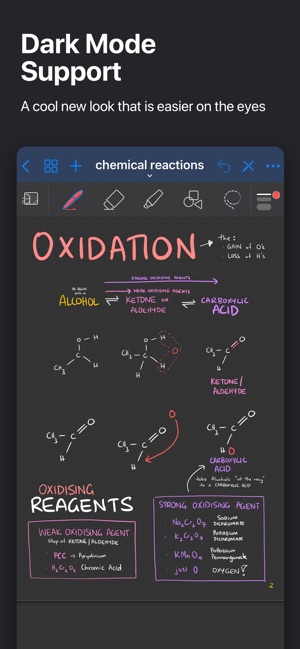 Dark Mode
Support
A cool new look that is easier on the eyes
chemical reactions
OXIDATION
the:
· GAIN of O's
· LOSS of H's
STRONG OXIDISING AGENTS
WEAK OXIDISING AGENTS
ALCOHOL ⇌ KETONE or ALDEHYDE ⇌ CARBOXYLIC ACID
O – H
CH3 C H
H
O – H
CH3 – C O
H H
O
CH3 – C
KETONE/
ALDEHYDE
O
CH3 – C
H
O
O
CH3 – C
H
O
CH3 – C
O
H
CARBOXYLIC
ACID
take Alcohols "all the way"
to a CARBOXYLIC ACID
OXIDISING
REAGENTS
WEAK OXIDISING AGENT
Stop at KETONE/ALDEHYDE
· PCC →
· H2Cr2O7 Chromic Acid
STRONG OXIDISING AGENT
· Na2Cr2O7 SODIUM DICHROMATE
· K2Cr2O7 POTASSIUM DICHROMATE
· KMnO4 Potassium Permanganate
· just O OXYGEN?
2